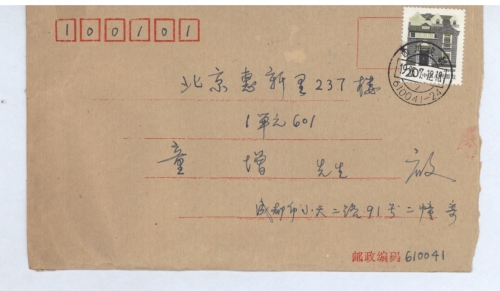 100101
北京惠新里237楼
1单元601
童增 先生 启
成都市小天二路91号二幢寄
邮政编码 610041
610041-24